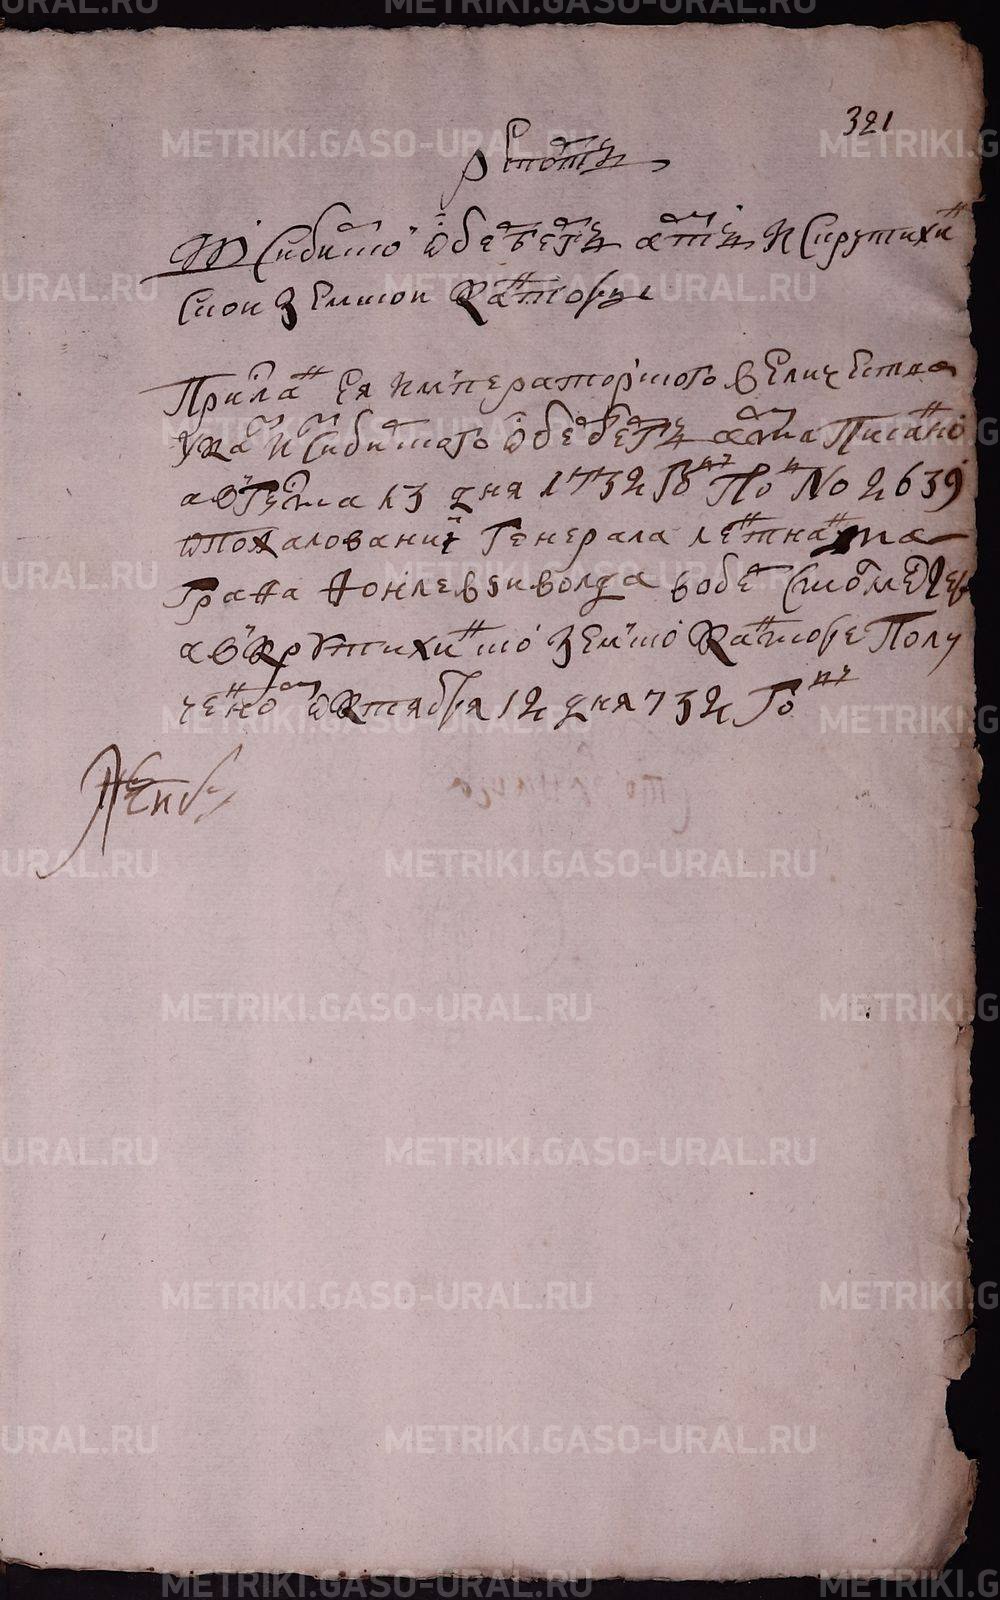 321
репортъ
В Сибирской обербергъ амтъ ис Крутихин
ской земской канторы
Прислан ея императорского величества
указ ис Сибирского обербергъ амта писанной
августа 13 дня 1732 году под № 2639
о пожаловании генерала лейтнанта
графа фон Левенволда в обер
а в Крутихинской земской канторе полу
чено октября 12 дня 732 году
METRIKI.GASO-URAL.RU